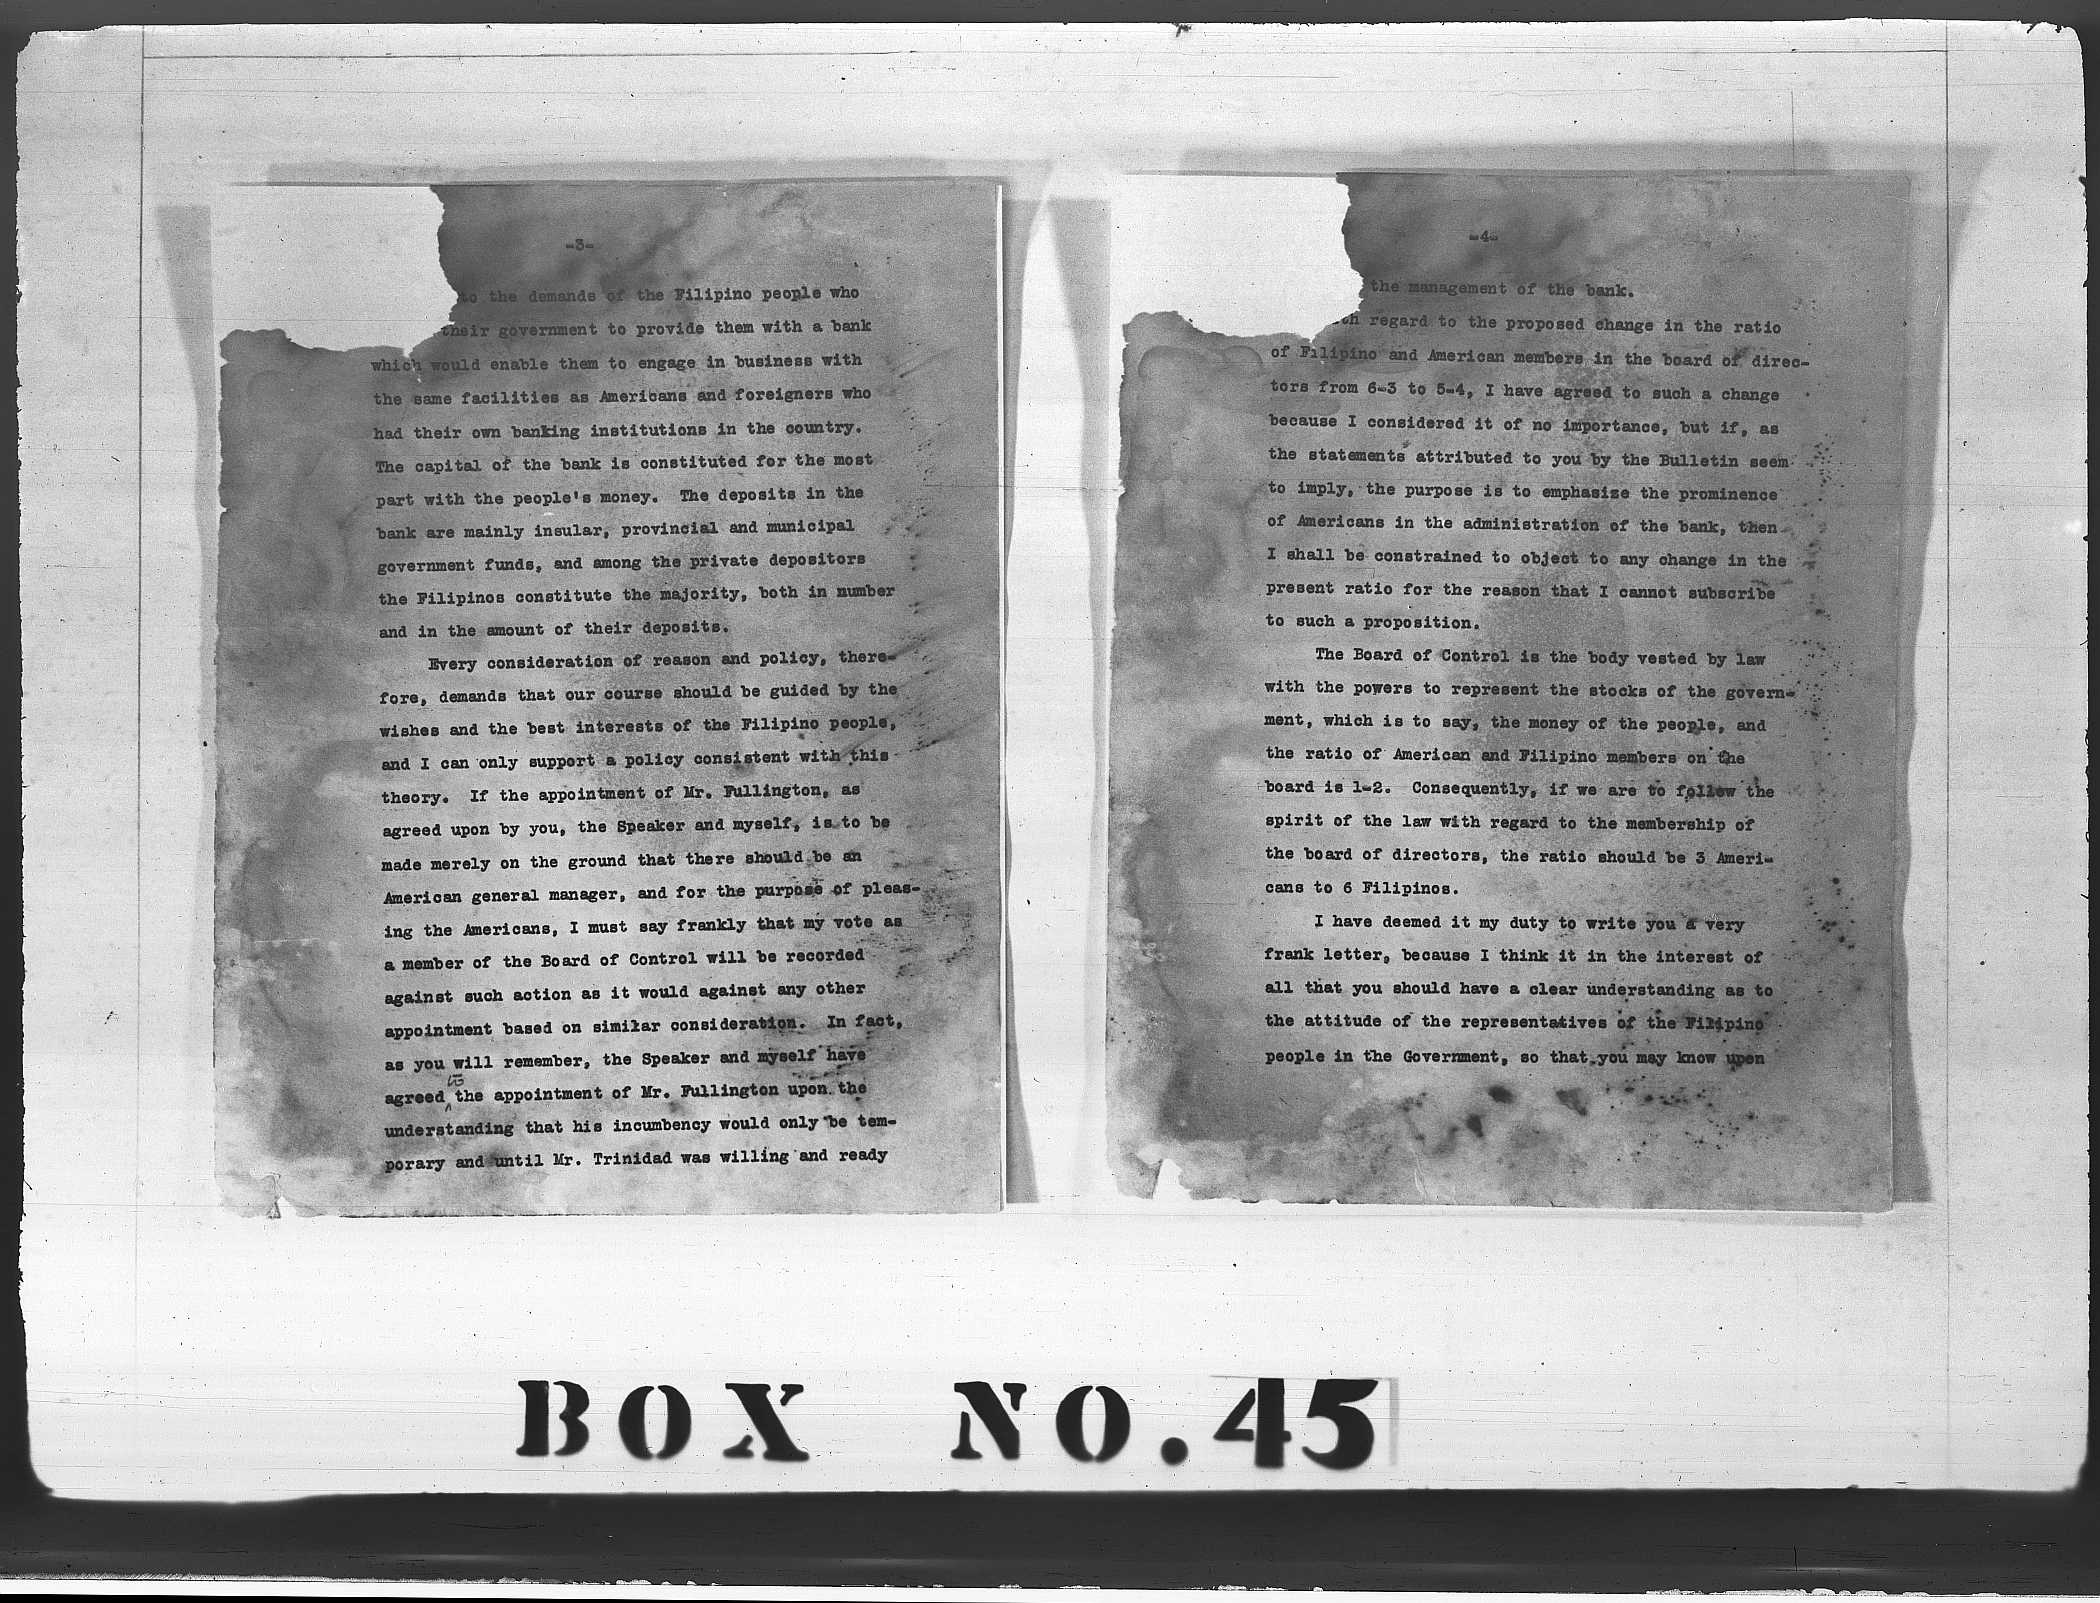 -3-
to the demands of the Filipino people who
their government to provide them with a bank
which would enable them to engage in business with
the same facilities as Americans and foreigners who
had their own banking institutions in the country.
The capital of the bank is constituted for the most
part with the people's money. The deposits in the
bank are mainly insular, provincial and municipal
government funds, and among the private depositors
the Filipinos constitute the majority, both in number
and in the amount of their deposits.
Every consideration of reason and policy, there-
fore, demands that our course should be guided by the
wishes and the best interests of the Filipino people,
and I can only support a policy consistent with this
theory. If the appointment of Mr. Fullington, as
agreed upon by you, the Speaker and myself, is to be
made merely on the ground that there should be an
American general manager, and for the purpose of pleas-
ing the Americans, I must say frankly that my vote as
a member of the Board of Control will be recorded
against such action as it would against any other
appointment based on similar consideration. In fact,
as you will remember, the Speaker and myself have
agreed to the appointment of Mr. Fullington upon the
understanding that his incumbency would only be tem-
porary and until Mr. Trinidad was willing and ready
-4-
the management of the bank.
regard to the proposed change in the ratio
of Filipino and American members in the board of direc-
tors from 6-3 to 5-4, I have agreed to such a change
because I considered it of no importance, but if, as
the statements attributed to you by the Bulletin seem
to imply, the purpose is to emphasize the prominence
of Americans in the administration of the bank, then
I shall be constrained to object to any change in the
present ratio for the reason that I cannot subscribe
to such a proposition.
The Board of Control is the body vested by law
with the powers to represent the stocks of the govern-
ment, which is to say, the money of the people, and
the ratio of American and Filipino members on the
board is 1-2. Consequently, if we are to follow the
spirit of the law with regard to the membership of
the board of directors, the ratio should be 3 Ameri-
cans to 6 Filipinos.
I have deemed it my duty to write you a very
frank letter, because I think it in the interest of
all that you should have a clear understanding as to
the attitude of the representatives of the Filipino
people in the Government, so that you may know upon
BOX NO. 45